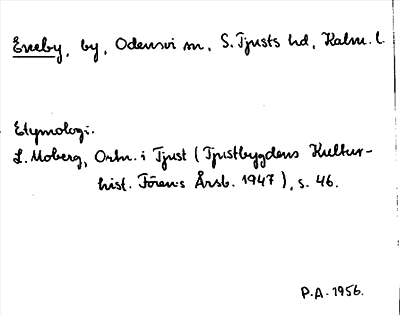 Eneby, by, Odensvi sn, S. Tjusts hd, Kalm. l.
Etymologi.
L. Moberg, Ortn. i Tjust (Tjustbygdens Kultur-
hist. Fören:s Årsb. 1947), s. 46.
P.A. 1956.